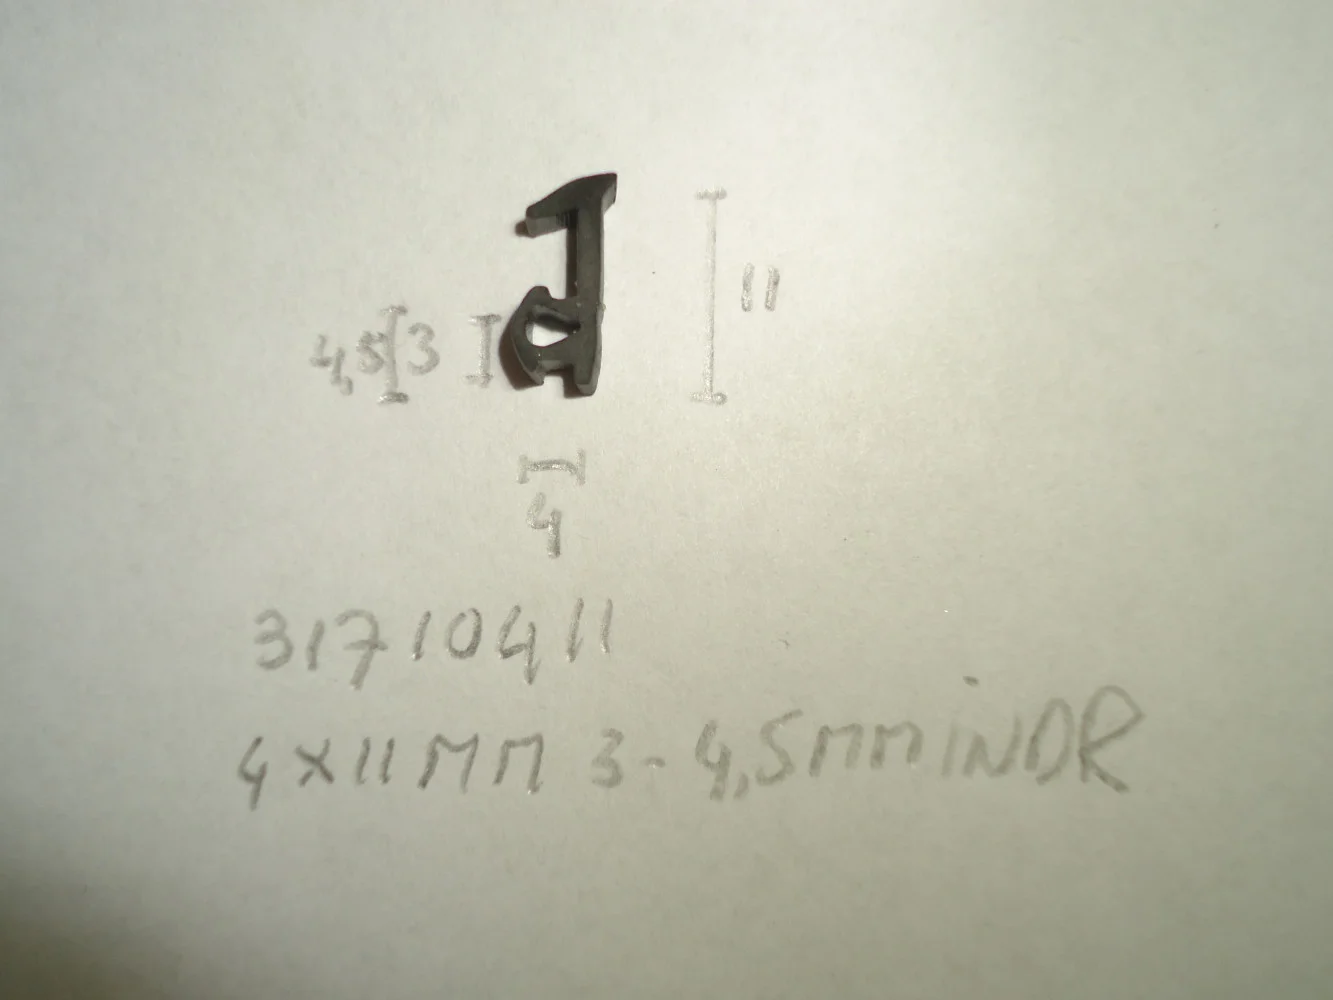 11
4,5 3
4
31710411
4x11MM 3-4,5mmiNDR